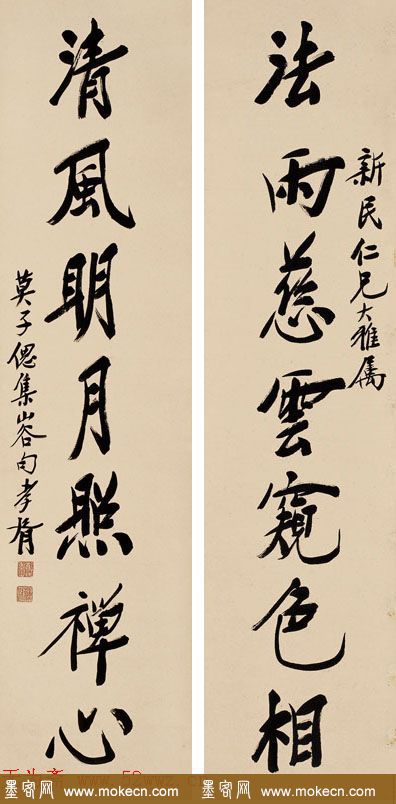 法雨慈雲窺色相
新民仁兄大雅属
清風明月照禪心
莫子偲集山谷句孝胥
墨客网 www.mokecn.com
墨客网 www.mokecn.com